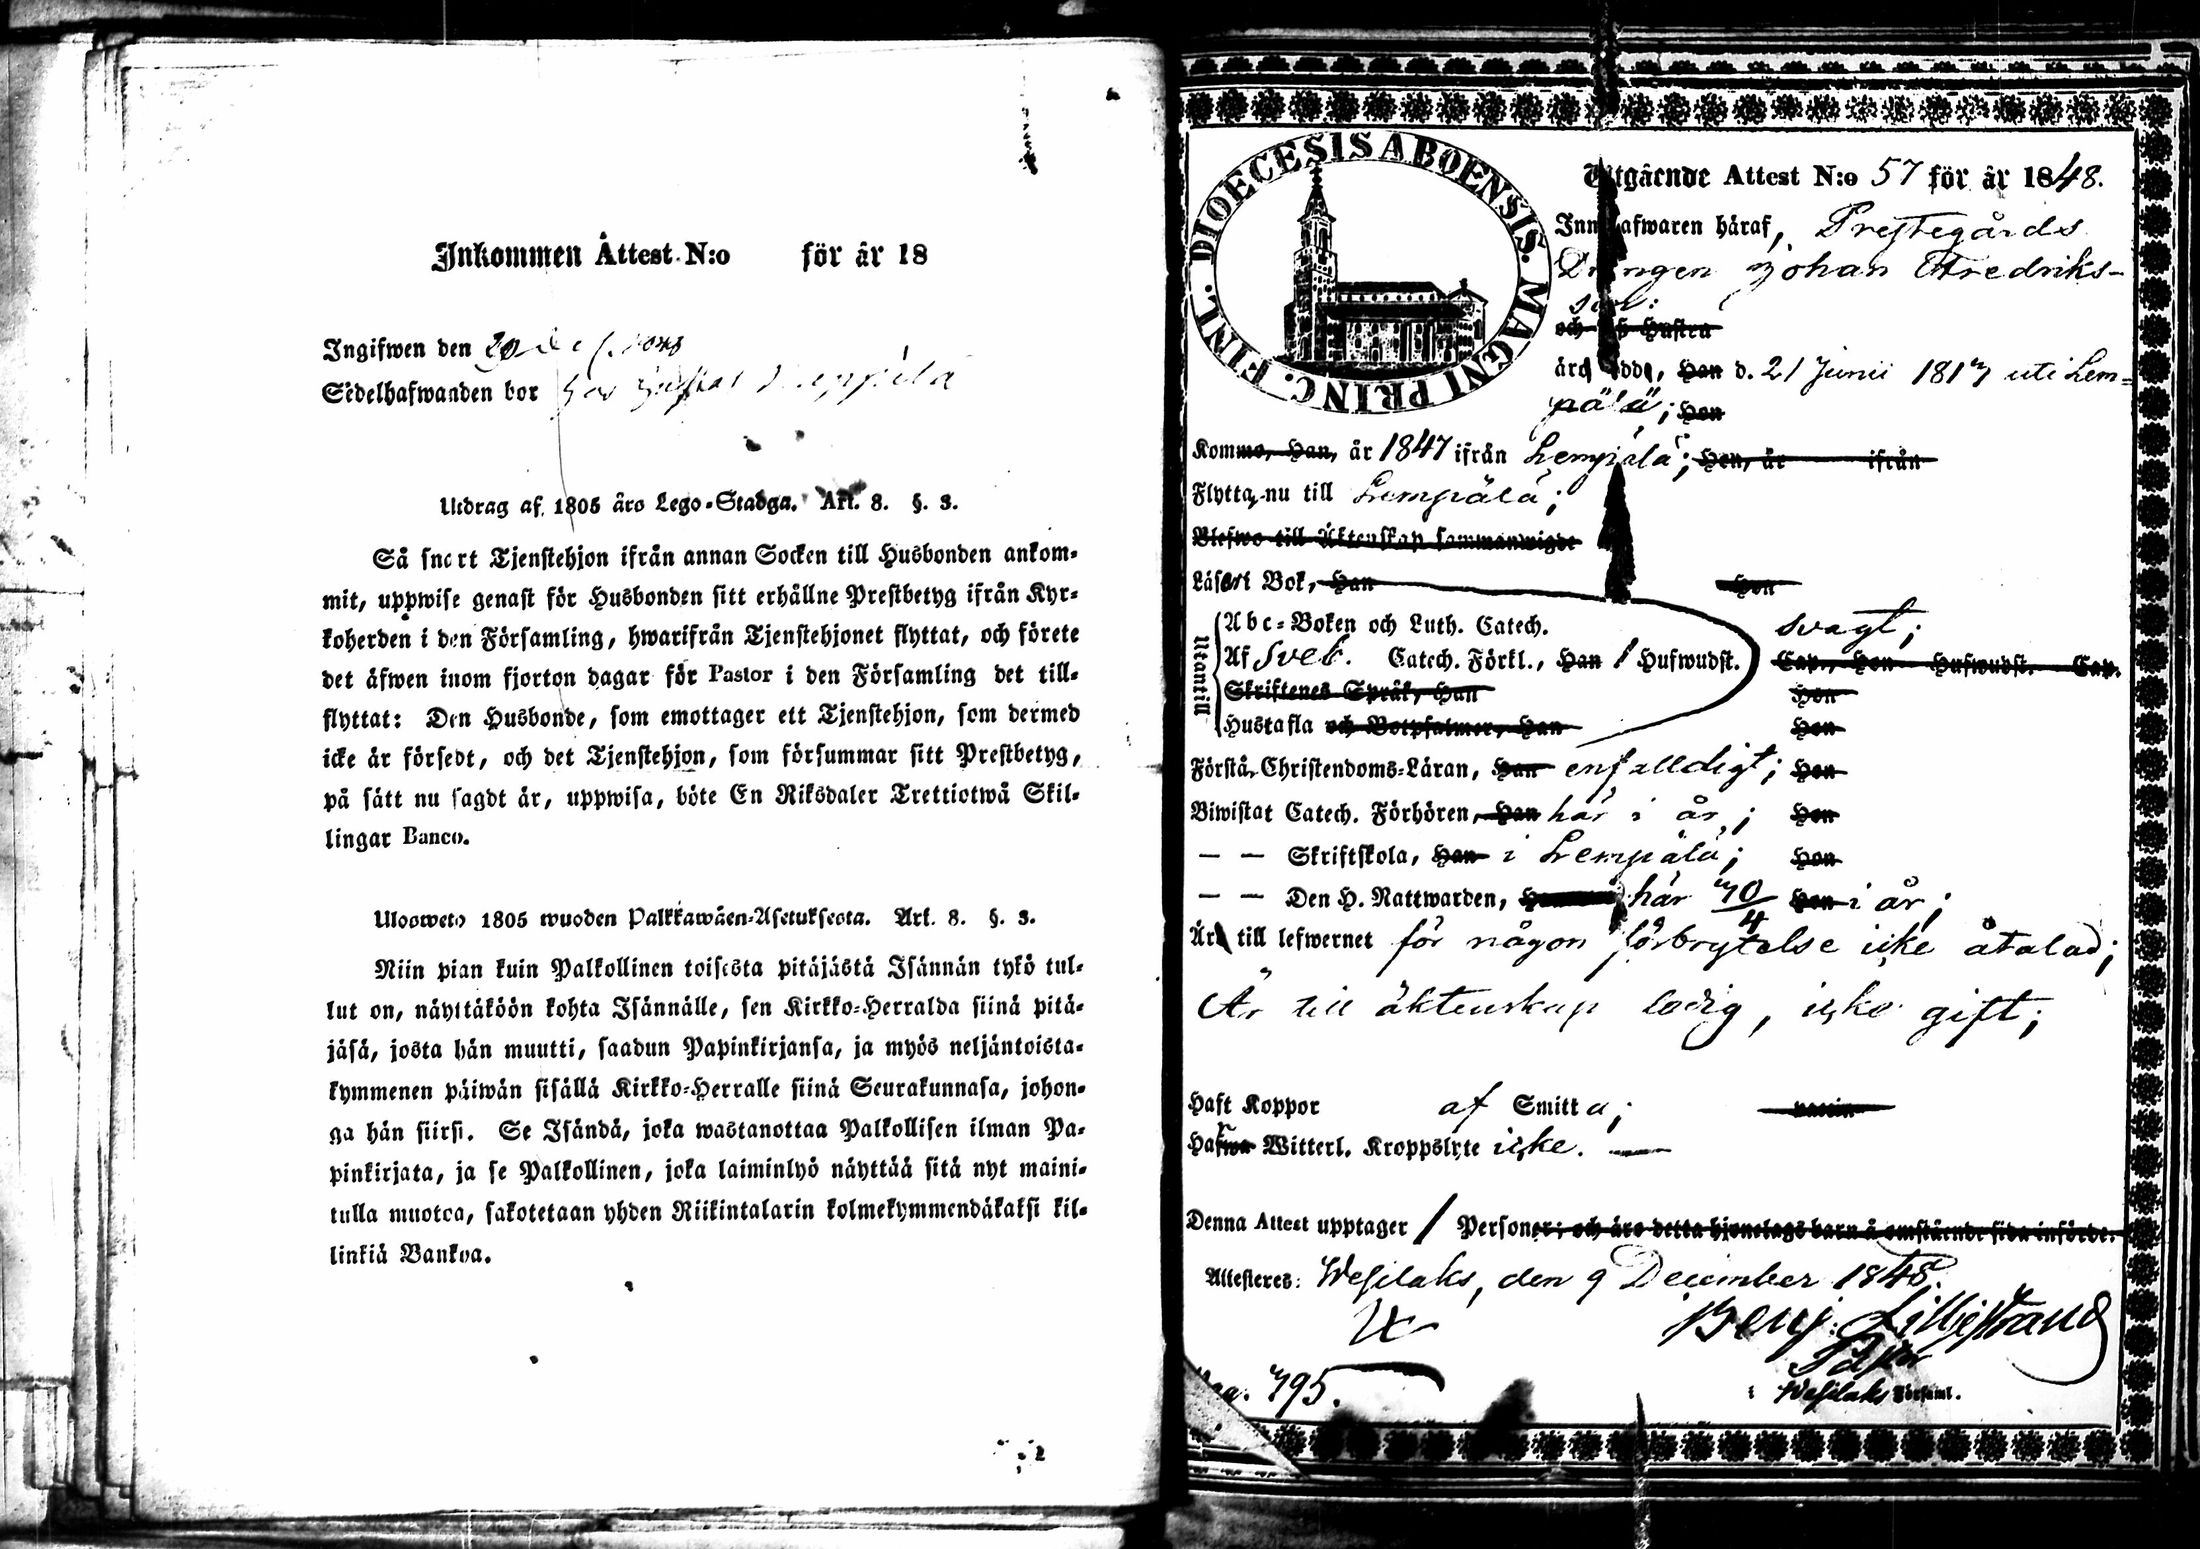 Inkommen Attest N:o för år 18
Ingifwen den
Sedelhafwanden bor hos
Utdrag af 1805 års Lego-Stadga. Art. 8. §. 3.
Så snart Tjenstehjon ifrån annan Socken till Husbonden ankom-
mit, uppwise genast för Husbonden sitt erhållne Prestbetyg ifrån Kyr-
koherden i den Församling, hwarifrån Tjenstehjonet flyttat, och förete
det äfwen inom fjorton dagar för Pastor i den Församling det till-
flyttat: Den Husbonde, som emottager ett Tjenstehjon, som dermed
icke är försedt, och det Tjenstehjon, som försummar sitt Prestbetyg,
på sätt nu sagdt är, uppwisa, böte En Riksdaler Trettiotwå Skil-
lingar Banco.
Ulosweto 1805 wuoden Palkkawäen-Asetuksesta. Art. 8. §. 3.
Niin pian kuin Palkollinen toisesta pitäjästä Isännän tykö tul-
lut on, näyttäköön kohta Isännälle, sen Kirkko-Herralda siinä pitä-
jäsä, josta hän muutti, saadun Papinkirjansa, ja myös neljäntoista-
kymmenen päiwän sisällä Kirkko-Herralle siinä Seurakunnasa, johon-
ga hän siirsi. Se Isändä, joka wastanottaa Palkollisen ilman Pa-
pinkirjata, ja se Palkollinen, joka laiminlyö näyttää sitä nyt maini-
tulla muotoa, sakotetaan yhden Riikintalarin kolmekymmendäkaksi kil-
linkiä Bankoa.
DIOECESIS ABOENSIS. MAGNI PRINC. FINL.
Utgående Attest N:o 57 för år 1848.
Innehafwaren häraf, Prestegårds
Drängen Johan Fredriks-
son:
och hs Hustru
äro födde, Han d. 21 Junii 1817 uti Lem-
pälä; Hon
Kommo, Han, år 1847 ifrån Lempälä; Hon, år ifrån
Flytta nu till Lempälä;
Blefwo till Äktenskap sammanwigde
Läsa i Bok, Han Hon
Utantill
Abc-Boken och Luth. Catech. svagt;
Af Sveb. Catech. Förkl., Han 1 Hufwudst. Cap., Hon Hufwudst. Cap.
Skriftenes Språk, Han Hon
Hustafla och Botpsalmer, Han Hon
Förstå Christendoms-Läran, Han enfalldigt; Hon
Biwistat Catech. Förhören, Han här i år; Hon
— — Skriftskola, Han i Lempälä; Hon
— — Den H. Nattwarden, här Hon i år;
Är till lefwernet för någon förbrytelse icke åtalad;
Är till äktenskap ledig, icke gift;
Haft Koppor af Smitta; vaccin
Hafwa Witterl. Kroppslyte icke.
Denna Attest upptager 1 Personer; och äro detta hjonelags barn å omstående sida införde.
Attesteras: Wesilaks, den 9 December 1848.
Benj. Lilljestrand
Pastor
i Wesilaks Församl.
Pag. 795.